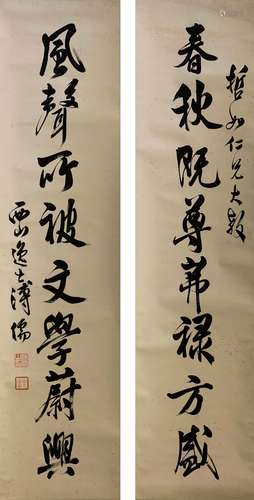 哲如仁兄大教
春秋既尊茀祿方盛
風聲所被文學蔚興
西山逸士溥儒